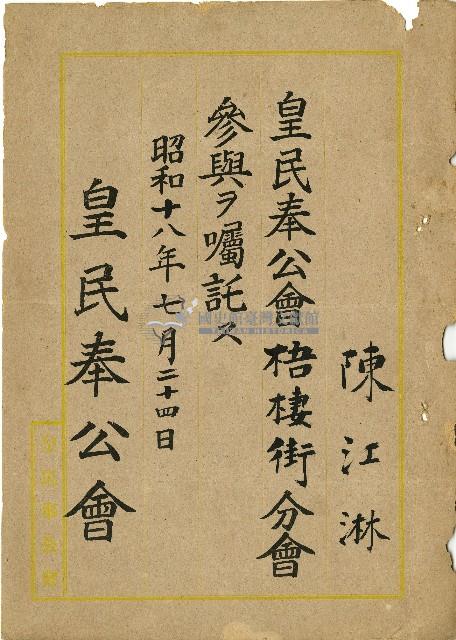 陳江淋
皇民奉公會梧棲街分會
參與ヲ囑託ス
昭和十八年七月二十四日
皇民奉公會
皇民奉公會
國史館臺灣文獻館
TAIWAN HISTORICA